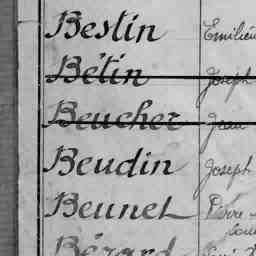 Bestin Emilien
Bétin Joseph
Beucher Jean
Beudin Joseph
Beunel Pierre
Bérard